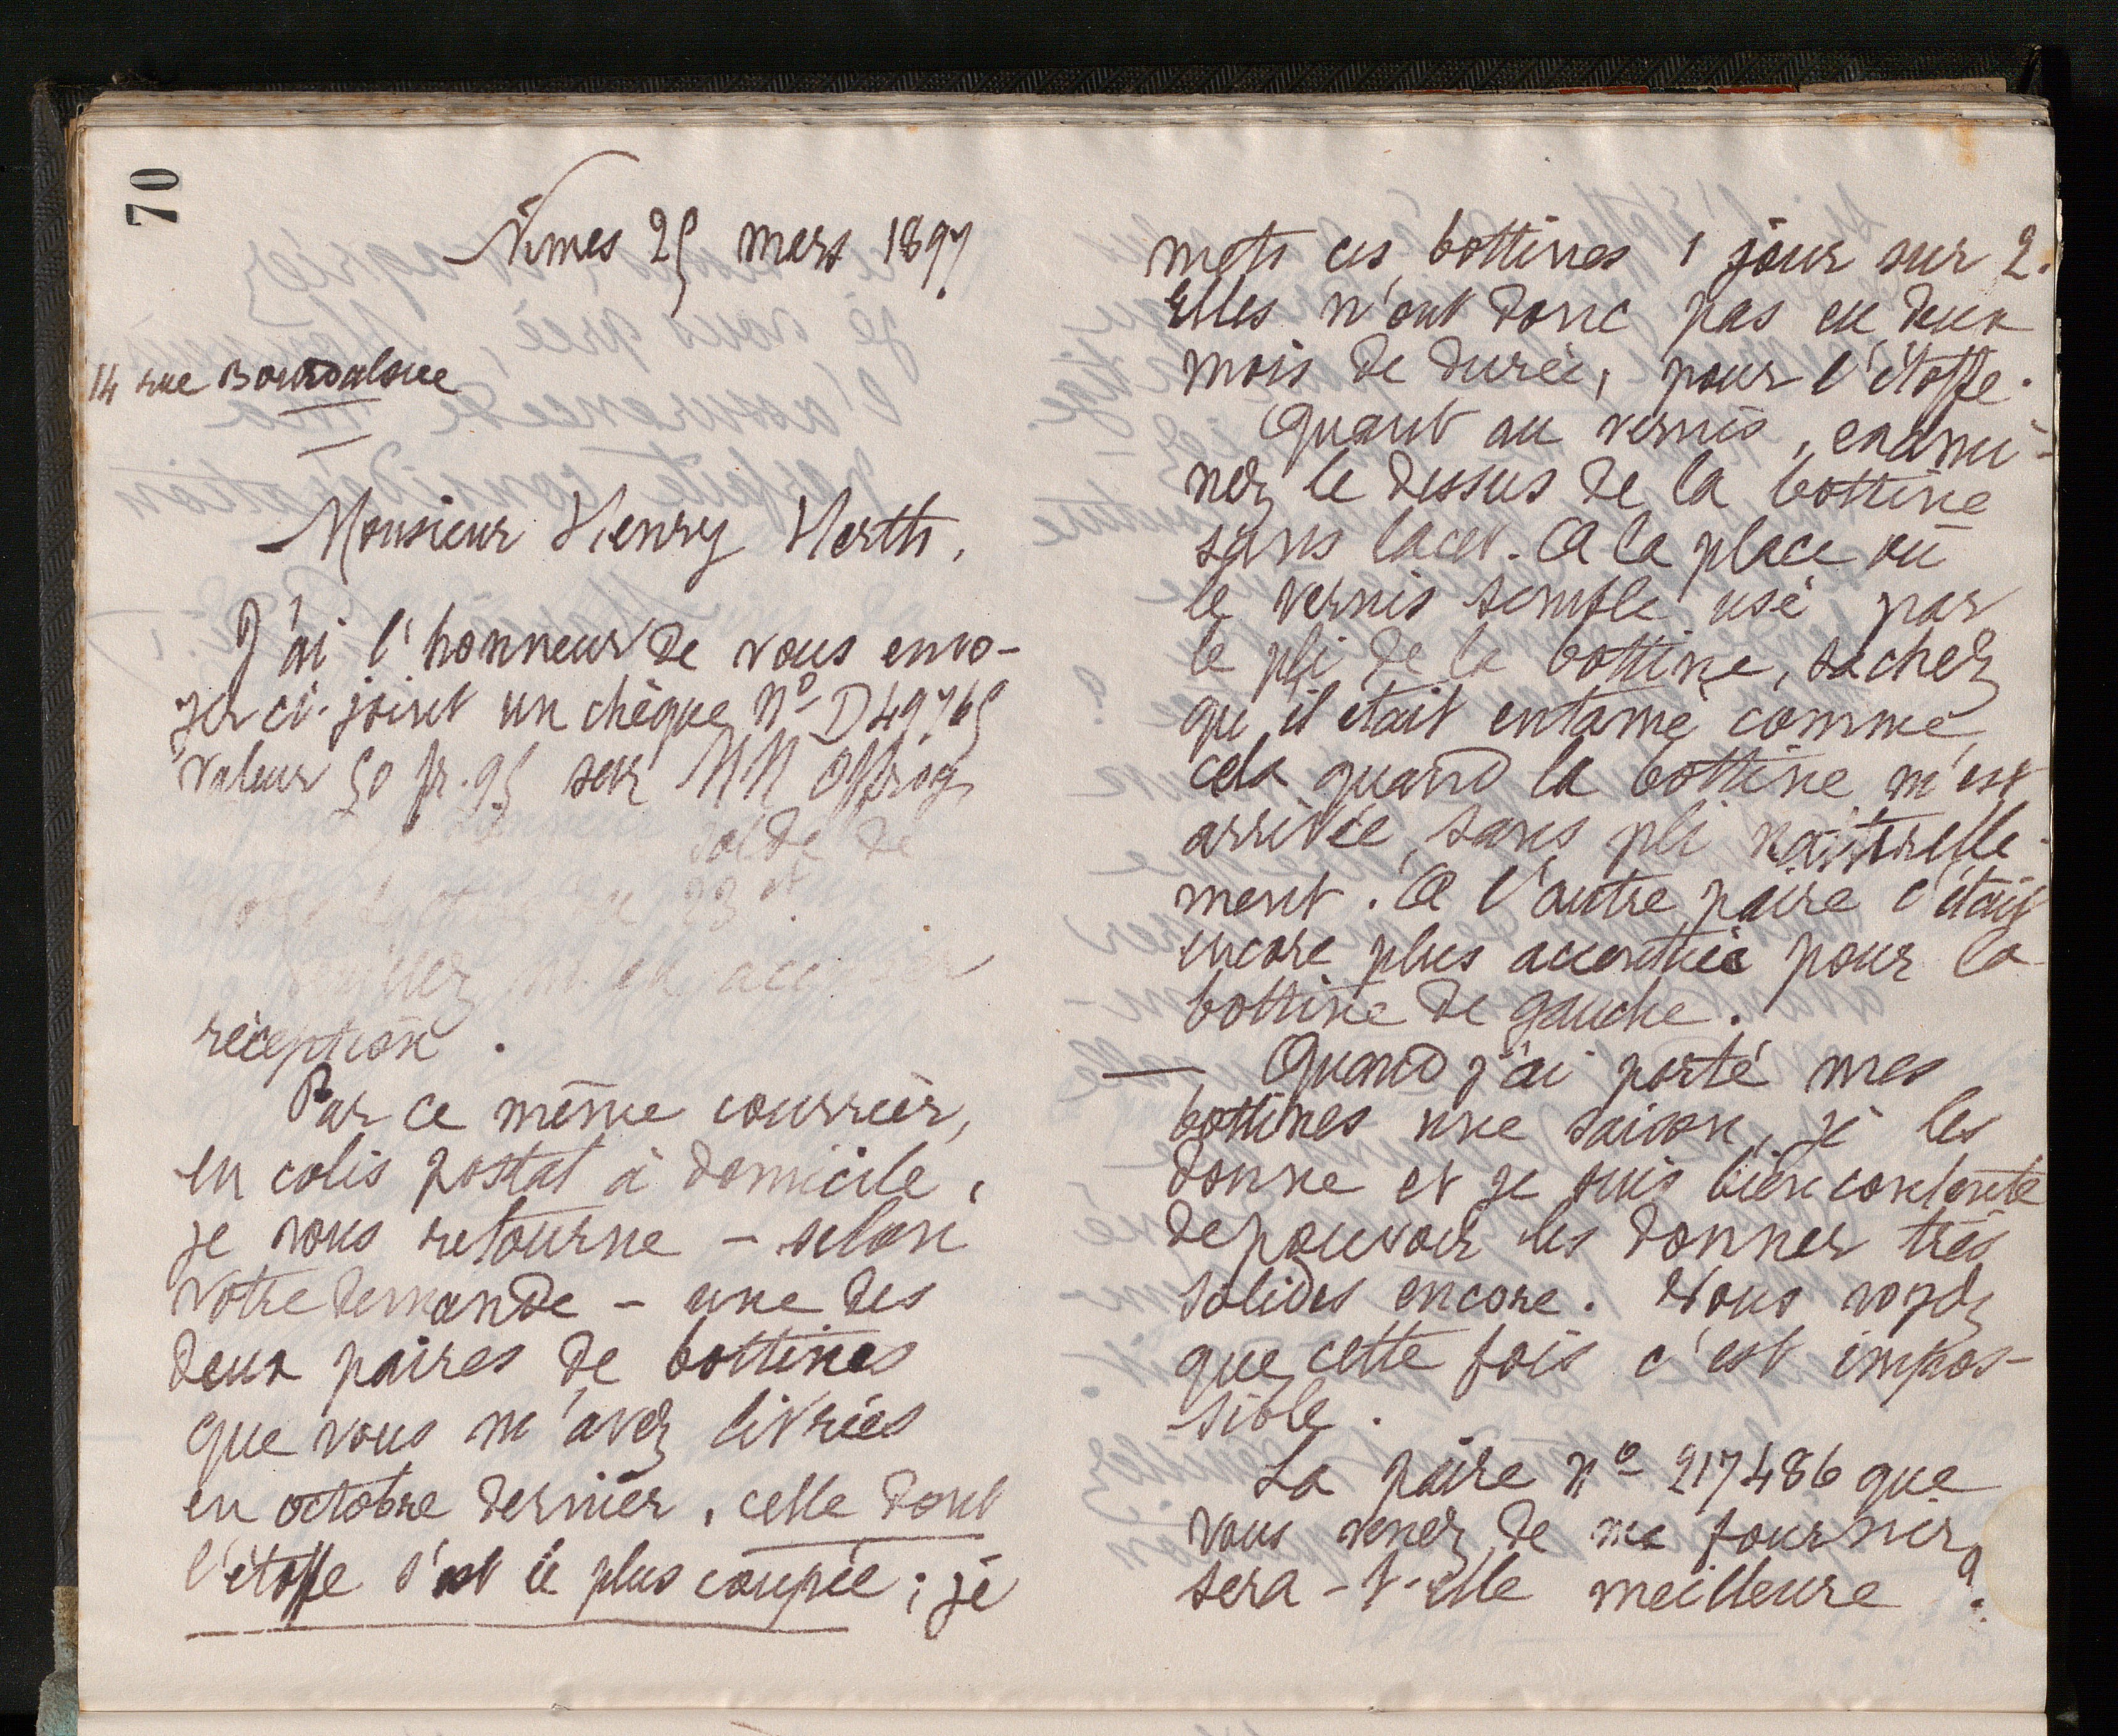 70
Nîmes 25 mars 1897
14 rue Bourdaloue
Monsieur Henry Herth,
J'ai l'honneur de vous envo-
yer ci-joint un chèque Nº D49765
valeur 50 fr. 95 sur MM
solde de
23 ct
Veuillez m'en acc
réception.
Par ce même courrier,
en colis postal à domicile,
je vous retourne – selon
votre demande – une des
deux paires de bottines
que vous m'avez livrées
en octobre dernier, celle dont
l'étoffe s'est le plus coupée ; je
mets ces bottines 1 jour sur 2.
Elles n'ont donc pas eu deux
mois de durée, pour l'étoffe.
Quant au vernis, exami-
nez le dessus de la bottine
sans lacet. A la place où
le vernis semble usé par
le pli de la bottine, sachez
qu'il était entamé comme
cela quand la bottine m'est
arrivée, sans pli naturelle-
ment. A l'autre paire c'était
encore plus accentué pour la
bottine de gauche.
— Quand j'ai porté mes
bottines une saison, je les
donne et je suis bien contente
de pouvoir les donner très
solides encore. Vous voyez
que cette fois c'est impos-
sible.
La paire Nº 217486 que
vous venez de me fournir
sera-t-elle meilleure ?